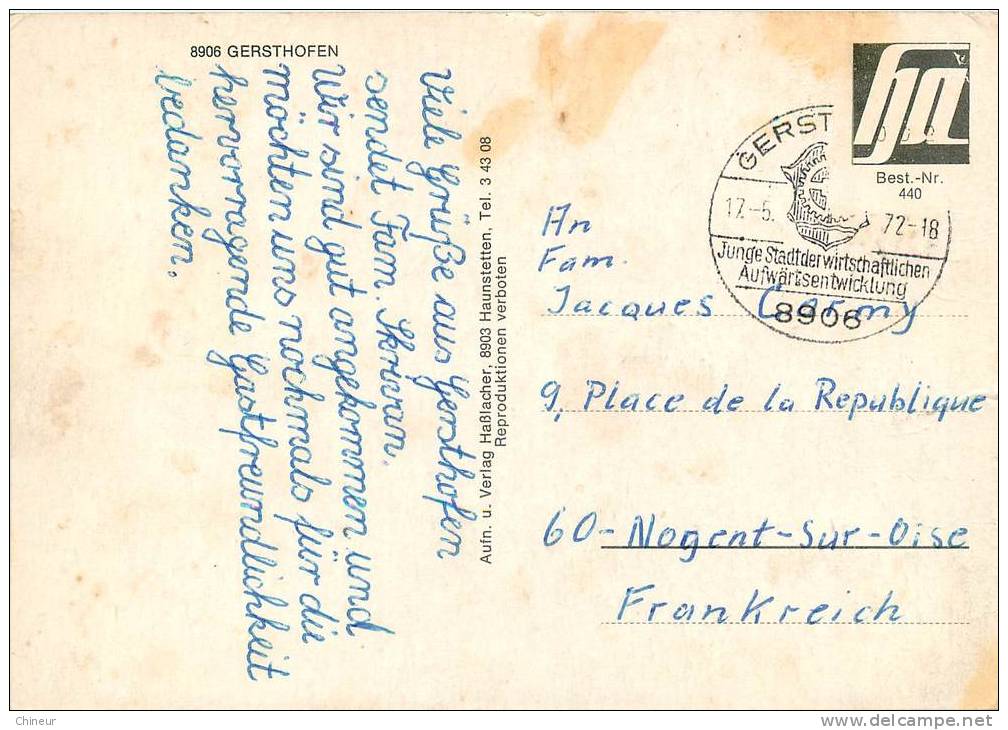 8906 GERSTHOFEN
Viele Grüße aus Gersthofen
sendet Fam.
Wir sind gut angekommen und
möchten uns nochmals für die
hervorragende Gastfreundlichkeit
bedanken.
Aufn. u. Verlag Haßlacher, 8903 Haunstetten, Tel. 3 43 08
Reproduktionen verboten
ha
Best.-Nr.
440
GERST
17.-5. 72-18
Junge Stadt der wirtschaftlichen
Aufwärtsentwicklung
8906
An
Fam.
Jacques
9, Place de la Republique
60-Nogent-Sur-Oise
Frankreich
Chineur
delcampe.net